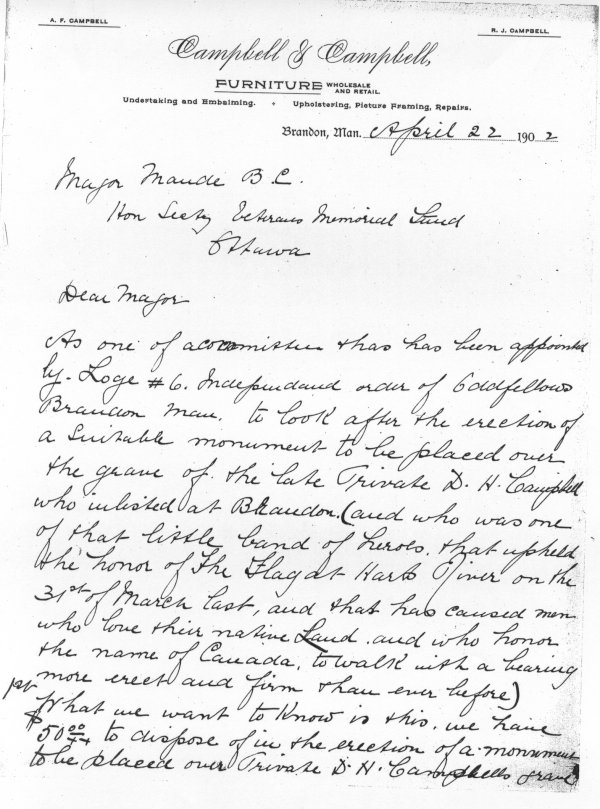 A. F. CAMPBELL
R. J. CAMPBELL.
Campbell & Campbell,
FURNITURE WHOLESALE AND RETAIL.
Undertaking and Embalming. • Upholstering, Picture Framing, Repairs.
Brandon, Man. April 22 1902
Major Maude B.C.
Hon Secty Veterans Memorial Fund
Ottawa
Dear Major
As one of a committee thas has been appointed
by Loge #6. Independand order of Oddfellows
Brandon Man. to look after the erection of
a suitable monument to be placed over
the grave of the late Private D. H. Campbell
who inlisted at Brandon. (and who was one
of that little band of heros. that upheld
the honor of the Flag at Harts River on the
31st of March last, and that has caused men
who love their native Land. and who honor
the name of Canada. to walk with a bearing
more erect and firm than ever before)
What we want to Know is this. we have
$50.00 to dispose of in the erection of a monument
to be placed over Private D. H. Campbells grave